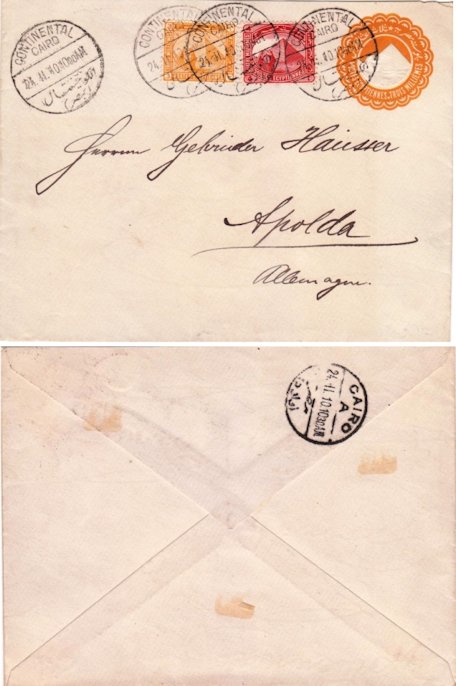 CONTINENTAL
CAIRO
24.11.10 1030AM
CONTINENTAL
CAIRO
24.
CONTINENTAL
CAIRO
24.11.10
CONTINENTAL
CAIRO
Herren Gebrüder Häusser
Apolda
Allemagne.
CAIRO
A
24.11.10 1030AM